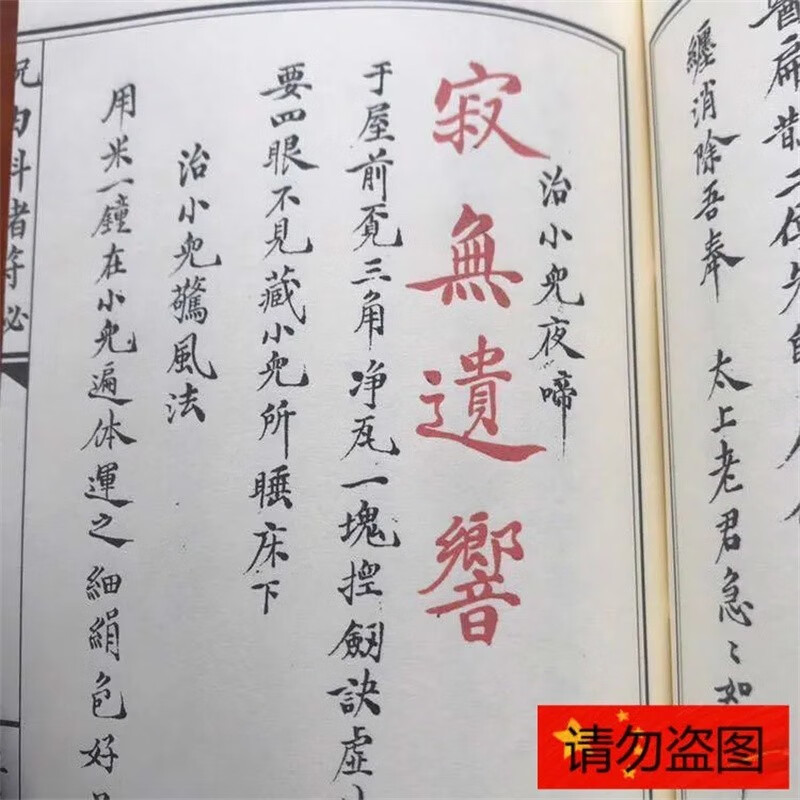 醫扁鵲二位先師
纏消除吾奉 太上老君急〻如
治小兒夜啼
寂無遺響
于屋前覓三角净瓦一塊揑劔訣虛
要四眼不見藏小兒所睡床下
治小兒驚風法
用米一鐘在小兒遍体運之細絹色好
内科者守必
请勿盗图